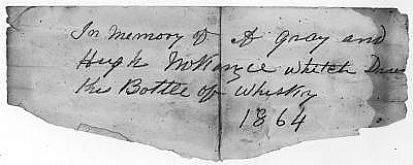 In Memory of A Gray and
Hugh McKenzie whitch Drus
this Bottle of Whisky
1864